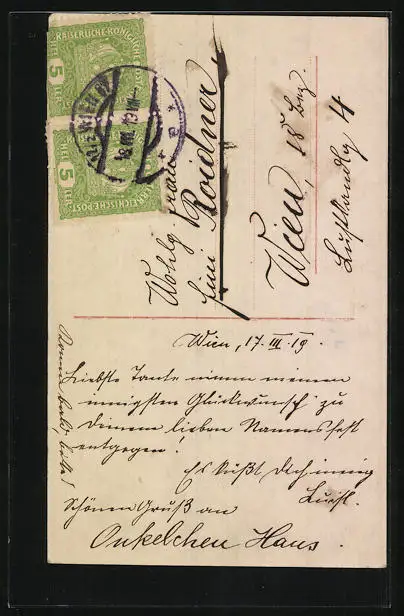 KAISERLICHE KÖNIGLICHE
5 HELLER 5
5 HELLER 5
ÖSTERREICHISCHE POST
WIEN
Wohlg. Frau
Fini Roidner
Wien, 18 Bez.
4
Wien, 17. III. 19.
Liebste Tante nimm meinen
innigsten Glückwunsch zu
Deinem lieben Namensfest
entgegen!
Es küßt Dich innig
Luisl.
Schönen Gruß an
Onkelchen Hans.
Komme bald, bitte!